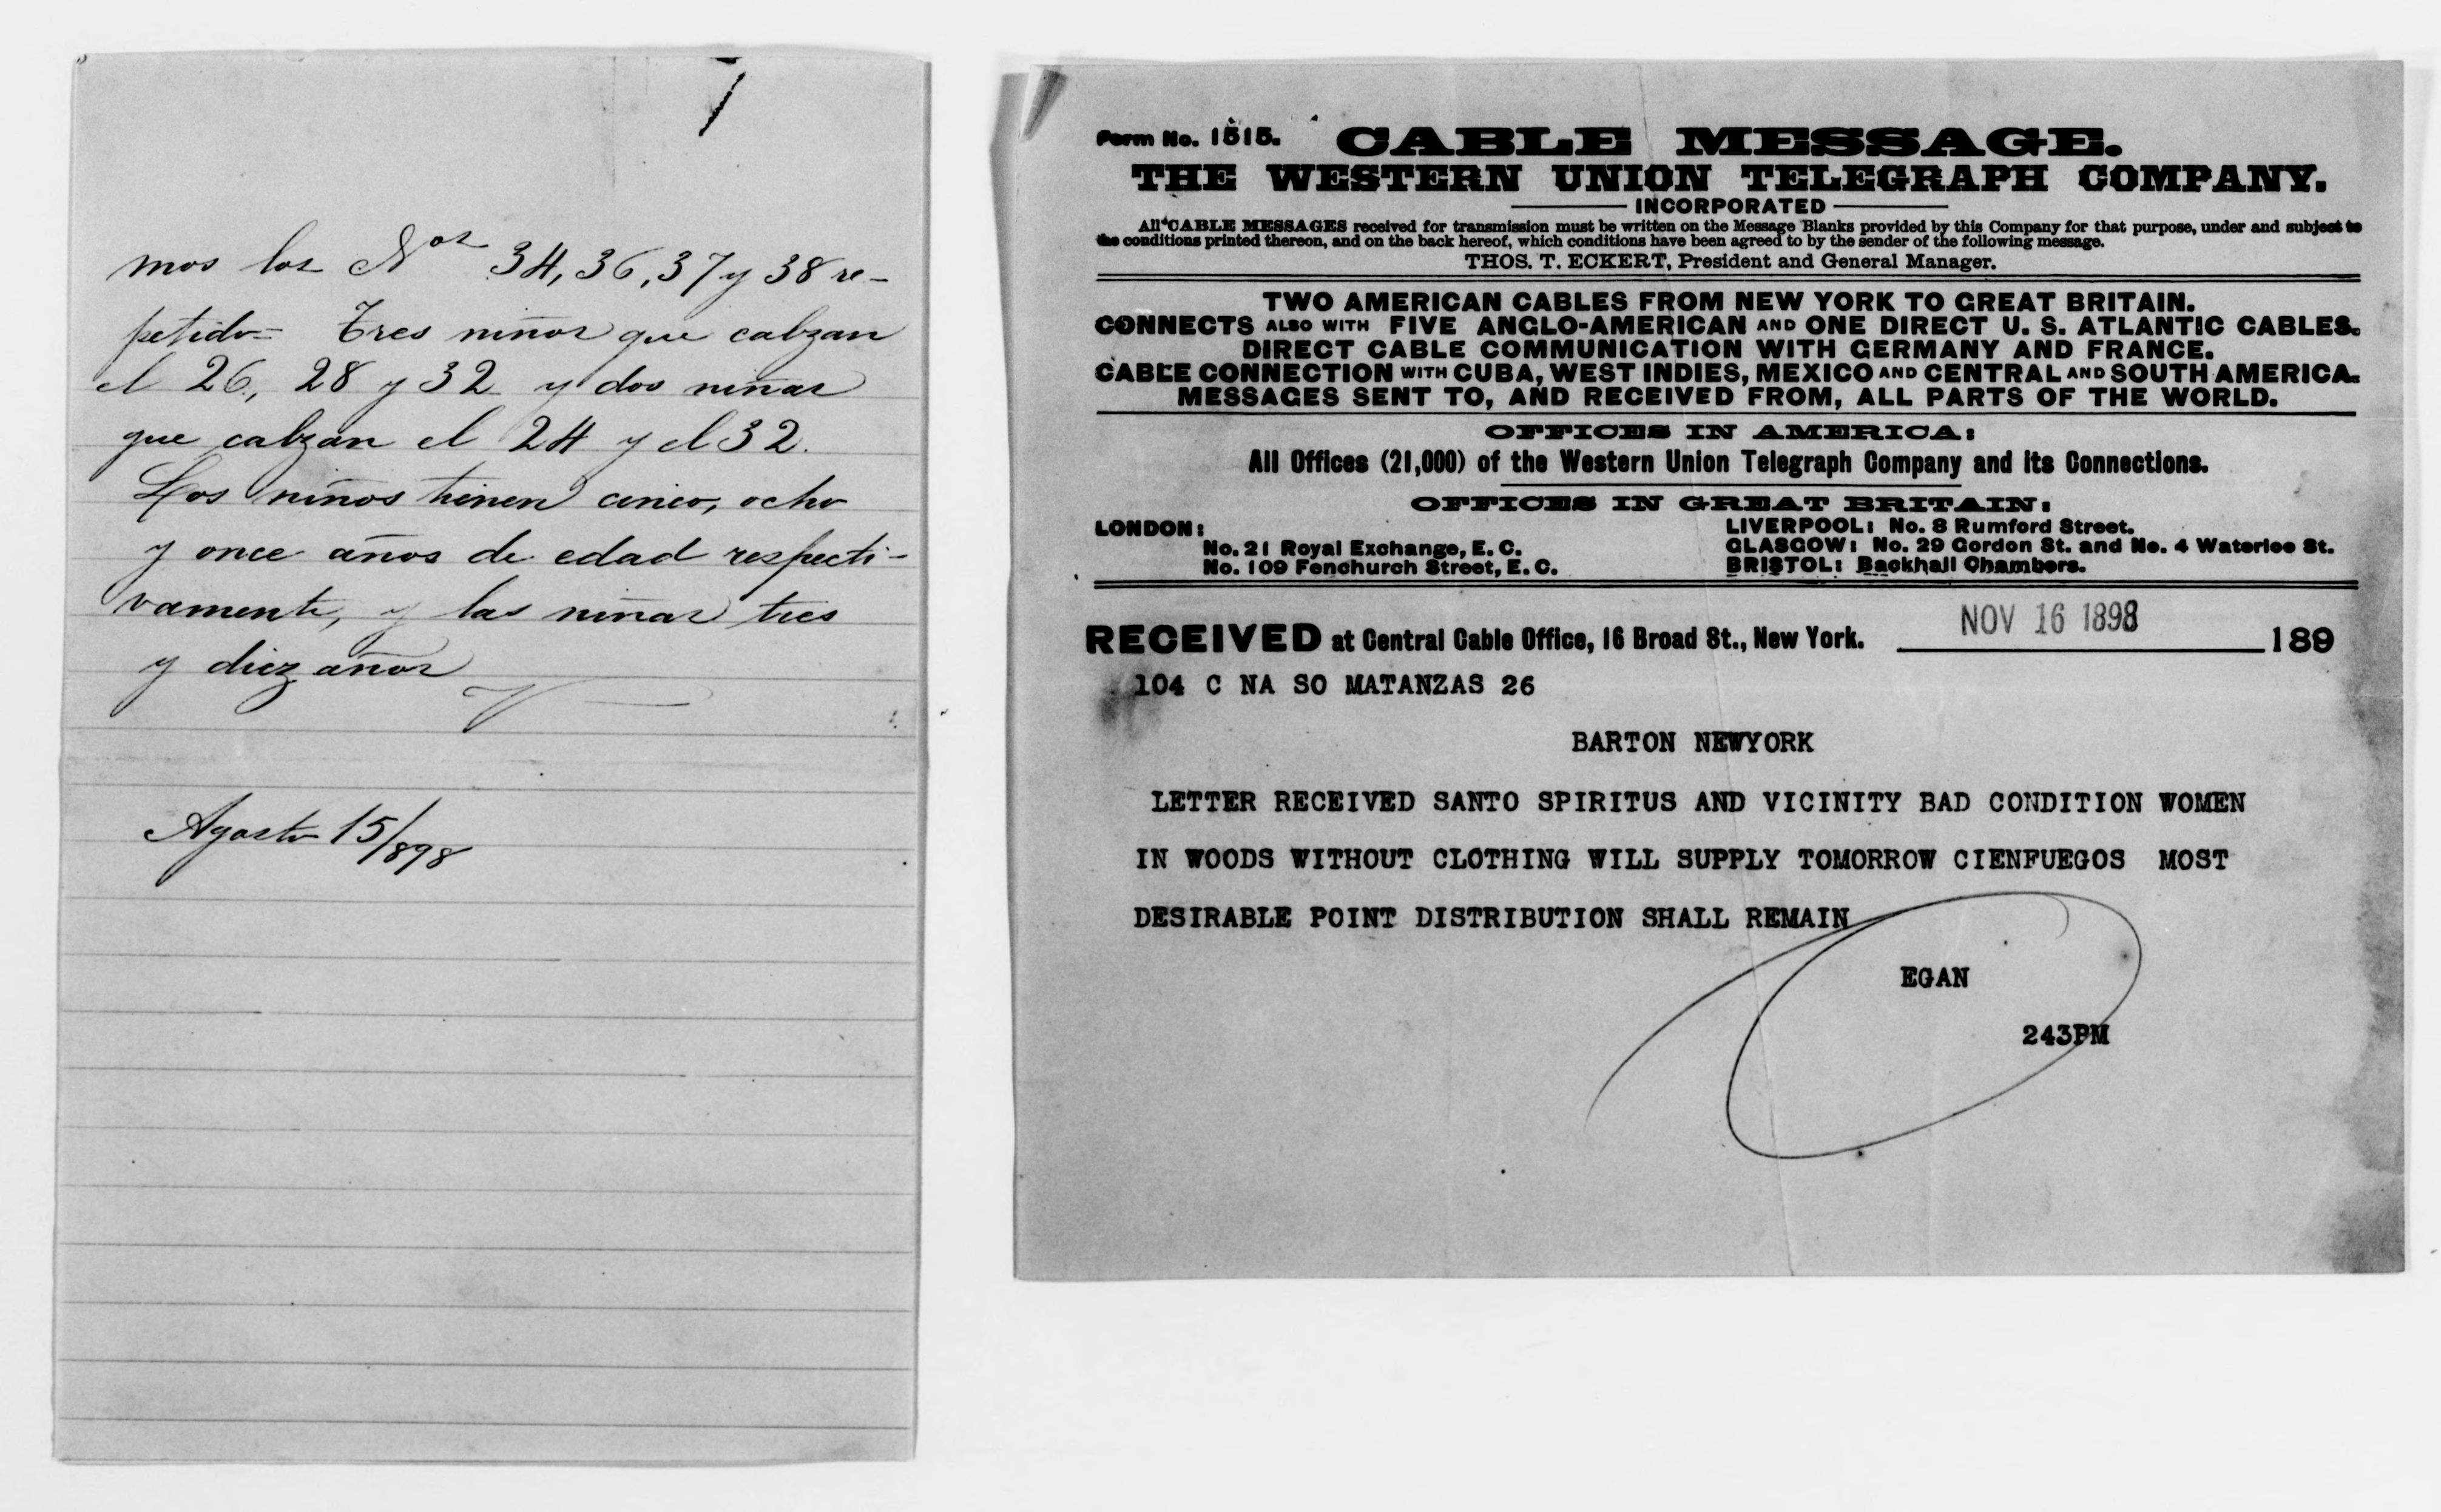 mos los Nos 34, 36, 37 y 38 re-
petido= Tres niños que calzan
el 26, 28 y 32 y dos niñas
que calzan el 24 y el 32.
Los niños tienen cinco, ocho
y once años de edad respecti-
vamente, y las niñas tres
y diez años
Agosto 15/898
Form No. 1515. CABLE MESSAGE.
THE WESTERN UNION TELEGRAPH COMPANY.
INCORPORATED
All CABLE MESSAGES received for transmission must be written on the Message Blanks provided by this Company for that purpose, under and subject to
the conditions printed thereon, and on the back hereof, which conditions have been agreed to by the sender of the following message.
THOS. T. ECKERT, President and General Manager.
TWO AMERICAN CABLES FROM NEW YORK TO GREAT BRITAIN.
CONNECTS ALSO WITH FIVE ANGLO-AMERICAN AND ONE DIRECT U. S. ATLANTIC CABLES.
DIRECT CABLE COMMUNICATION WITH GERMANY AND FRANCE.
CABLE CONNECTION WITH CUBA, WEST INDIES, MEXICO AND CENTRAL AND SOUTH AMERICA.
MESSAGES SENT TO, AND RECEIVED FROM, ALL PARTS OF THE WORLD.
OFFICES IN AMERICA:
All Offices (21,000) of the Western Union Telegraph Company and its Connections.
OFFICES IN GREAT BRITAIN:
LONDON:
No. 21 Royal Exchange, E. C.
No. 109 Fenchurch Street, E. C.
LIVERPOOL: No. 8 Rumford Street.
GLASGOW: No. 29 Gordon St. and No. 4 Waterloo St.
BRISTOL: Backhall Chambers.
RECEIVED at Central Cable Office, 16 Broad St., New York. NOV 16 1898 189
104 C NA SO MATANZAS 26
BARTON NEWYORK
LETTER RECEIVED SANTO SPIRITUS AND VICINITY BAD CONDITION WOMEN
IN WOODS WITHOUT CLOTHING WILL SUPPLY TOMORROW CIENFUEGOS MOST
DESIRABLE POINT DISTRIBUTION SHALL REMAIN
EGAN
243PM